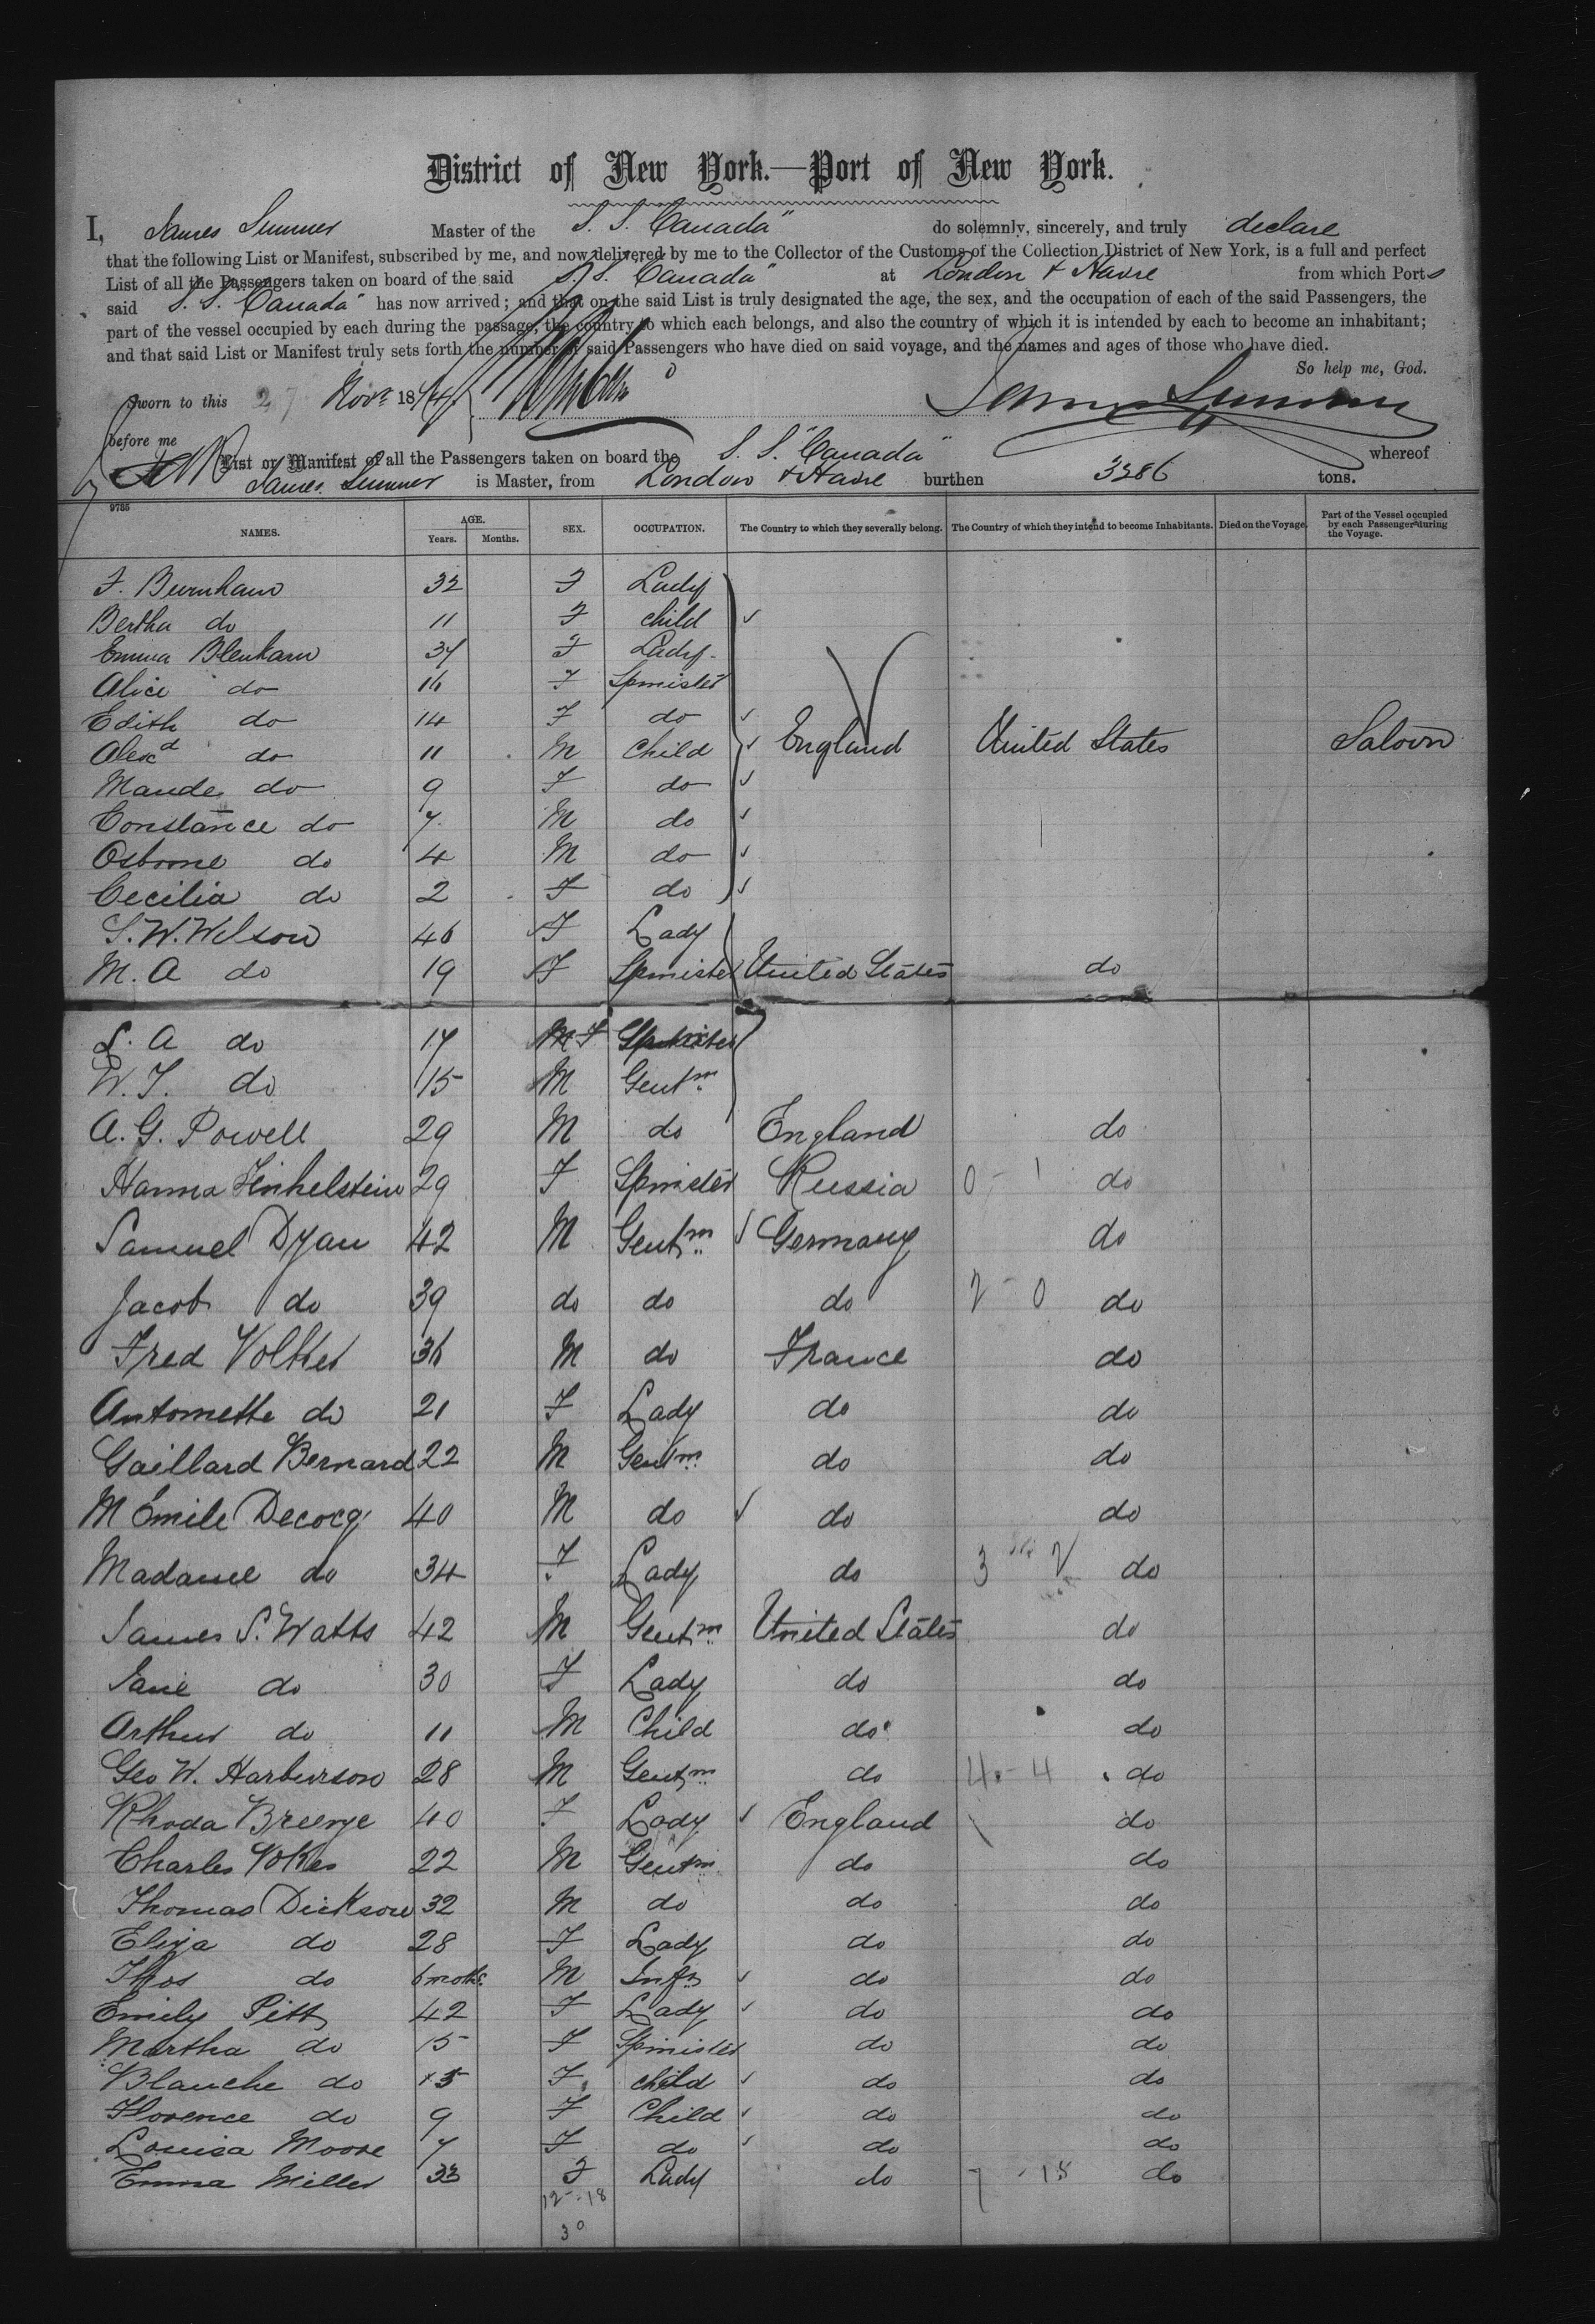 District of New York.—Port of New York.
I, James Sumner Master of the S. S. "Canada" do solemnly, sincerely, and truly declare
that the following List or Manifest, subscribed by me, and now delivered by me to the Collector of the Customs of the Collection District of New York, is a full and perfect
List of all the Passengers taken on board of the said S. S. "Canada" at London & Havre from which Ports
said S. S. "Canada" has now arrived; and that on the said List is truly designated the age, the sex, and the occupation of each of the said Passengers, the
part of the vessel occupied by each during the passage, the country to which each belongs, and also the country of which it is intended by each to become an inhabitant;
and that said List or Manifest truly sets forth the number of said Passengers who have died on said voyage, and the names and ages of those who have died.
So help me, God.
Sworn to this 27 Novr 187
before me
List or Manifest of all the Passengers taken on board the S. S. "Canada" whereof
James Sumner is Master, from London & Havre burthen 3386 tons.
9785
NAMES. AGE. Years. Months. SEX. OCCUPATION. The Country to which they severally belong. The Country of which they intend to become Inhabitants. Died on the Voyage. Part of the Vessel occupied by each Passenger during the Voyage.
F. Burnham 32 F Lady
Bertha do 11 F child
Emma Blenkarn 34 F Lady
Alice do 16 F Spinister
Edith do 14 F do
Alexd do 11 M Child England United States Saloon
Maude do 9 F do
Constance do 7 M do
Osborne do 4 M do
Cecilia do 2 F do
S. W. Wilson 46 F Lady
M. A do 19 F Spinister United States do
L. A do 17 F Spinister
W. J. do 15 M Gentm
A. G. Powell 29 M do England do
Hanna Finkelstein 29 F Spinister Russia 0 - 1 do
Samuel Dyan 42 M Gentm Germany do
Jacob do 39 do do do 2 - 0 do
Fred Volker 36 M do France do
Antoinette do 21 F Lady do do
Gaillard Bernard 22 M Gentm do do
M Emile Decocq 40 M do do do
Madame do 34 F Lady do 3 2 do
James S. Watts 42 M Gentm United States do
Jane do 30 F Lady do do
Arthur do 11 M Child do do
Geo W. Harburson 28 M Gentm do 4 - 4 do
Rhoda 40 F Lady England do
Charles Vokes 22 M Gentm do do
Thomas Dickson 32 M do do do
Eliza do 28 F Lady do do
Thos do 6 moths M Inft do do
Emily Pitt 42 F Lady do do
Martha do 15 F Spinister do do
Blanche do F child do do
Florence do 9 F Child do do
Louisa Moore 7 F do do do
Emma Miller 33 F Lady do 7 - 18 do
12 - 18
30